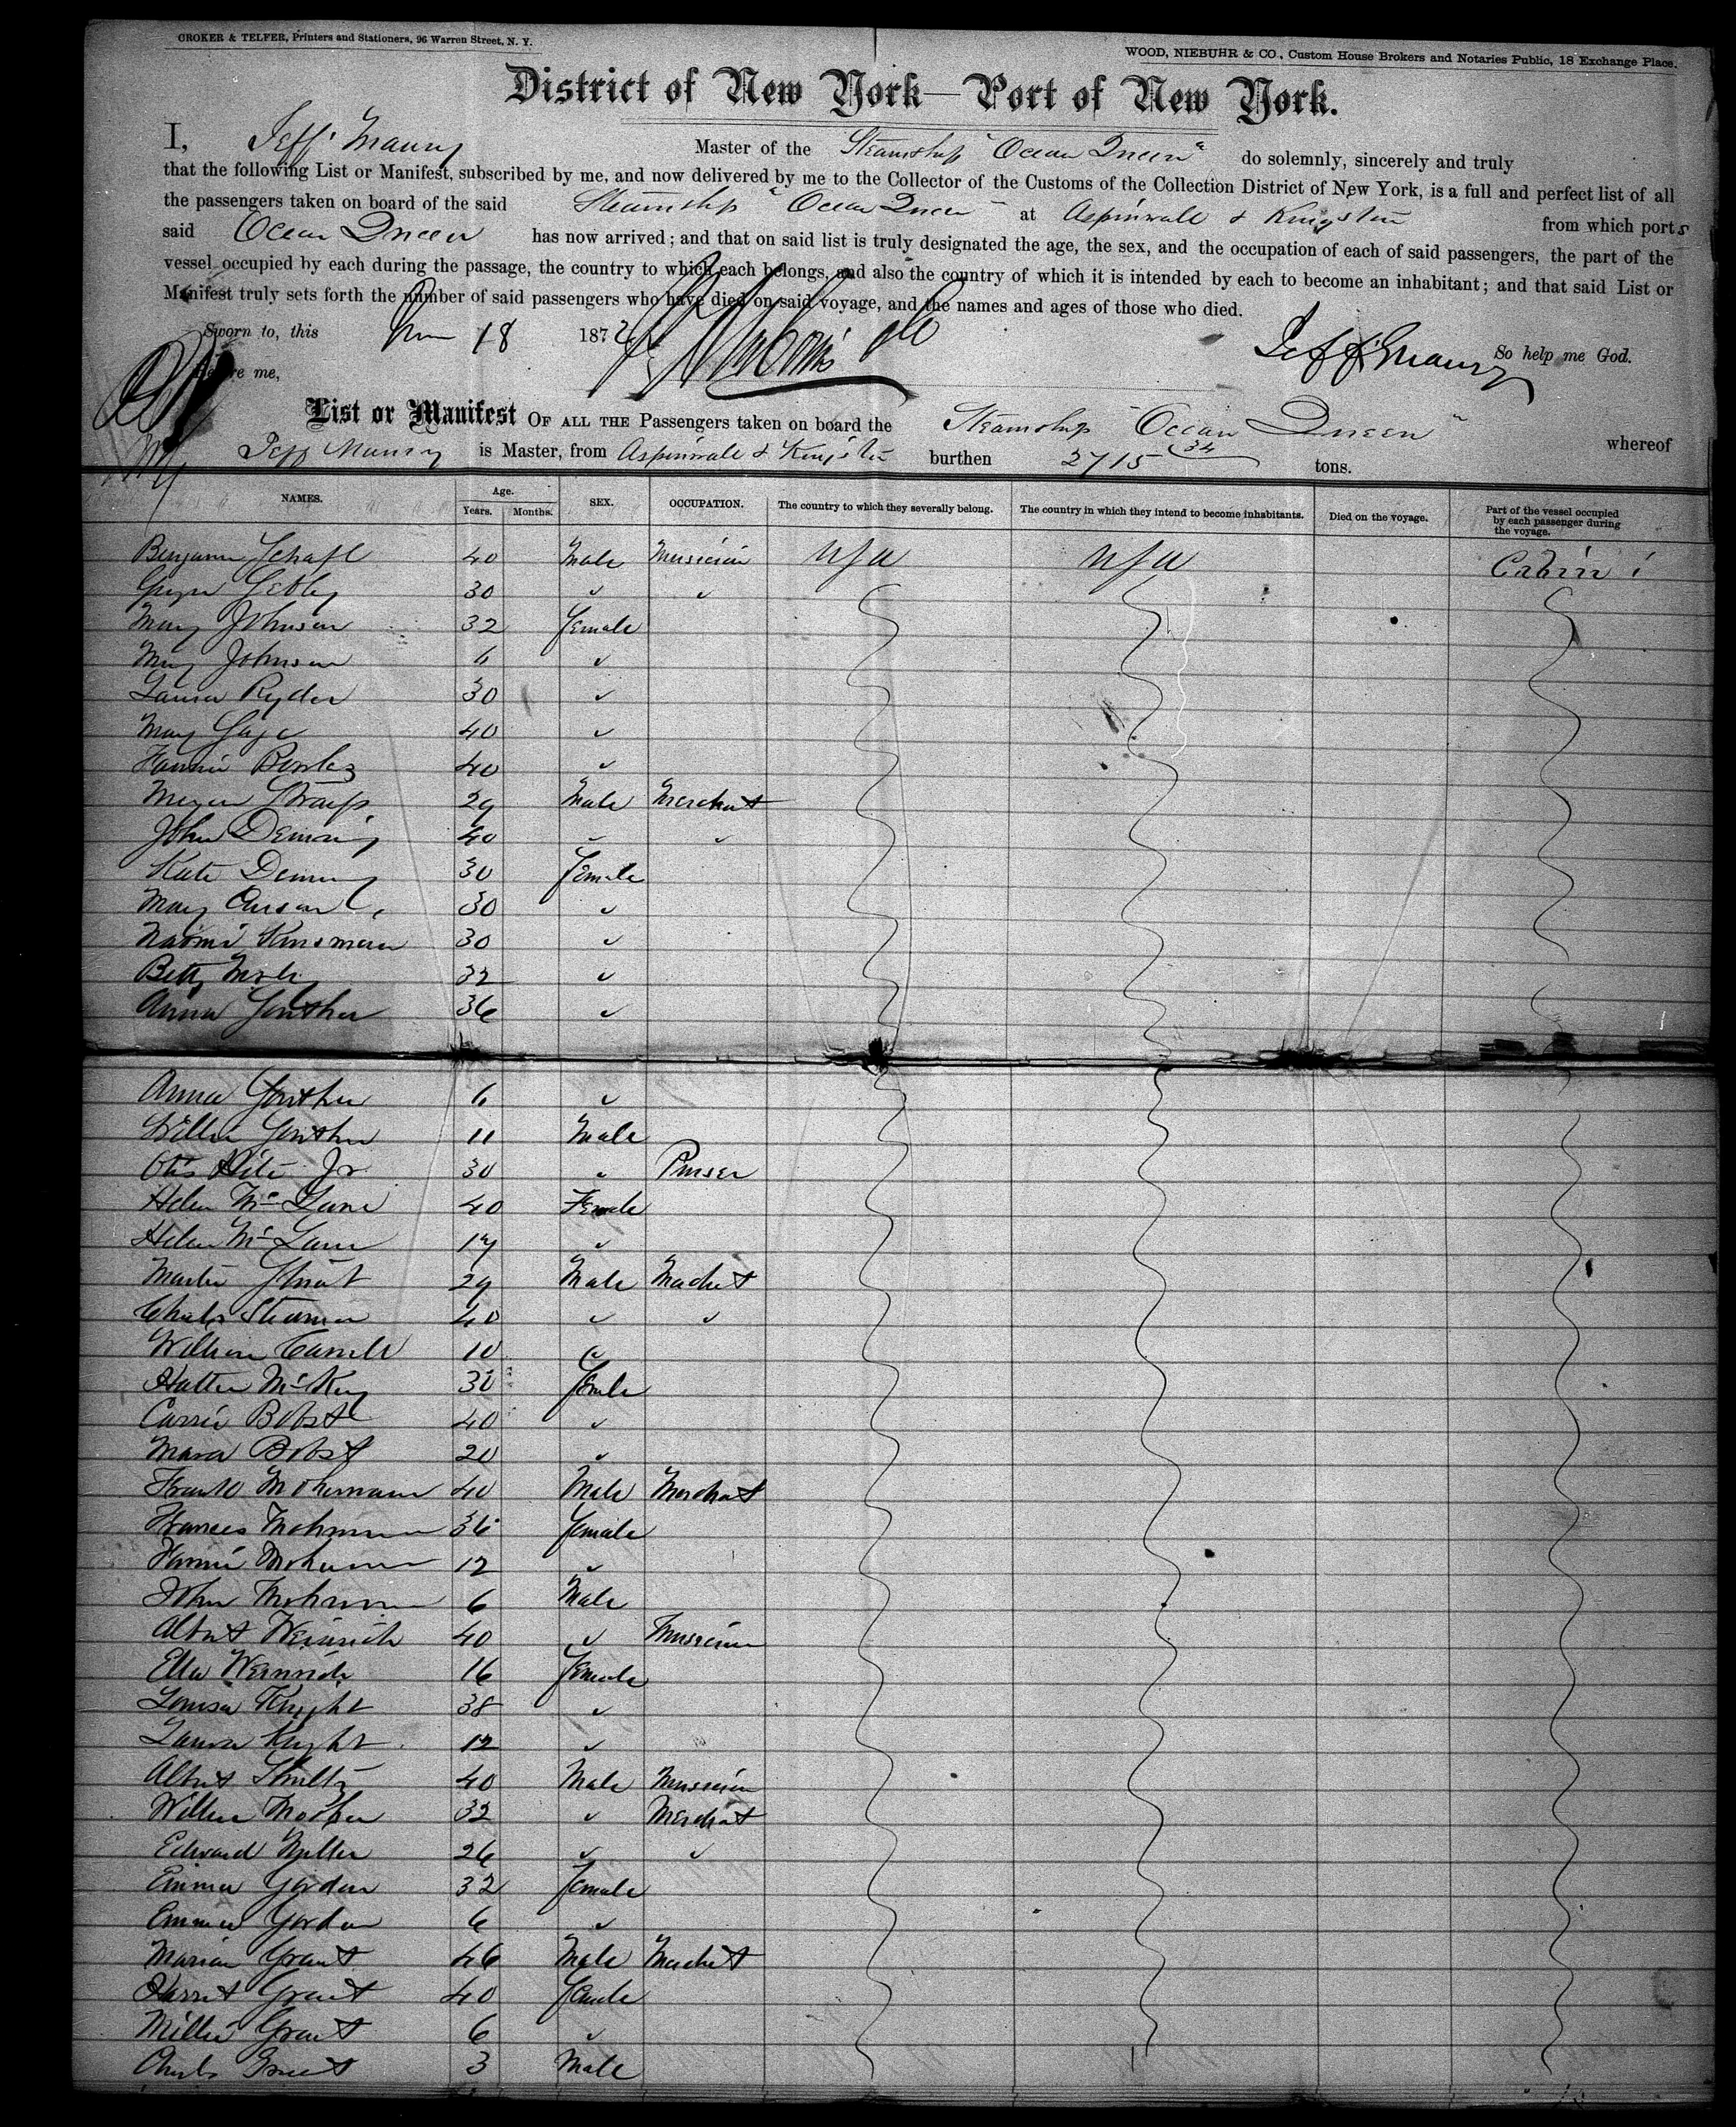 CROKER & TELFER, Printers and Stationers, 96 Warren Street, N. Y.
WOOD, NIEBUHR & CO., Custom House Brokers and Notaries Public, 18 Exchange Place.
District of New York—Port of New York.
I, Jeff Maury Master of the Steamship "Ocean Queen" do solemnly, sincerely and truly
that the following List or Manifest, subscribed by me, and now delivered by me to the Collector of the Customs of the Collection District of New York, is a full and perfect list of all
the passengers taken on board of the said Steamship "Ocean Queen" at Aspinwall & Kingston from which ports
said Ocean Queen has now arrived; and that on said list is truly designated the age, the sex, and the occupation of each of said passengers, the part of the
vessel occupied by each during the passage, the country to which each belongs, and also the country of which it is intended by each to become an inhabitant; and that said List or
Manifest truly sets forth the number of said passengers who have died on said voyage, and the names and ages of those who died.
Sworn to, this 18 187
Jeff Maury So help me God.
Before me,
List or Manifest OF ALL THE Passengers taken on board the Steamship "Ocean Queen" whereof
Jeff Maury is Master, from Aspinwall & Kingston burthen 2715 34 tons.
NAMES. Age. Years. Months. SEX. OCCUPATION. The country to which they severally belong. The country in which they intend to become inhabitants. Died on the voyage. Part of the vessel occupied by each passenger during the voyage.
Benjamin 40 Male Musician USA USA Cabin
30 " "
Mary Johnson 32 Female
Mary Johnson 6 "
Laura Ryder 30 "
Mary Gage 40 "
Fannie 40 "
Meyer 29 Male Merchant
John Deming 40 " "
Kate Deming 30 Female
Mary 30 "
Naomi Kinsman 30 "
Betty 32 "
Anna Gunther 36 "
Anna Gunther 6 "
Willie Gunther 11 Male
Otis Jr 30 " Purser
Helen McLane 40 Female
Helen McLane 17 "
Martin 29 Male Merchant
Charles 40 " "
William Carroll 10 "
Hattie McKey 30 Female
Carrie Bobst 40 "
Mara Bobst 20 "
Frank Mohrmann 40 Male Merchant
Frances Mohrmann 36 Female
Fannie Mohrmann 12 "
John Mohrmann 6 Male
Albert Weinrich 40 " Musician
Ella Weinrich 16 Female
Louisa Knight 38 "
Laura Knight 12 "
Albert Shultz 40 Male Musician
32 " Merchant
Edward Miller 26 " "
Emma Gordon 32 Female
Emma Gordon 6 "
Marian Grant 46 Male Merchant
Harriet Grant 40 Female
Millie Grant 6 "
Charles Grant 3 Male